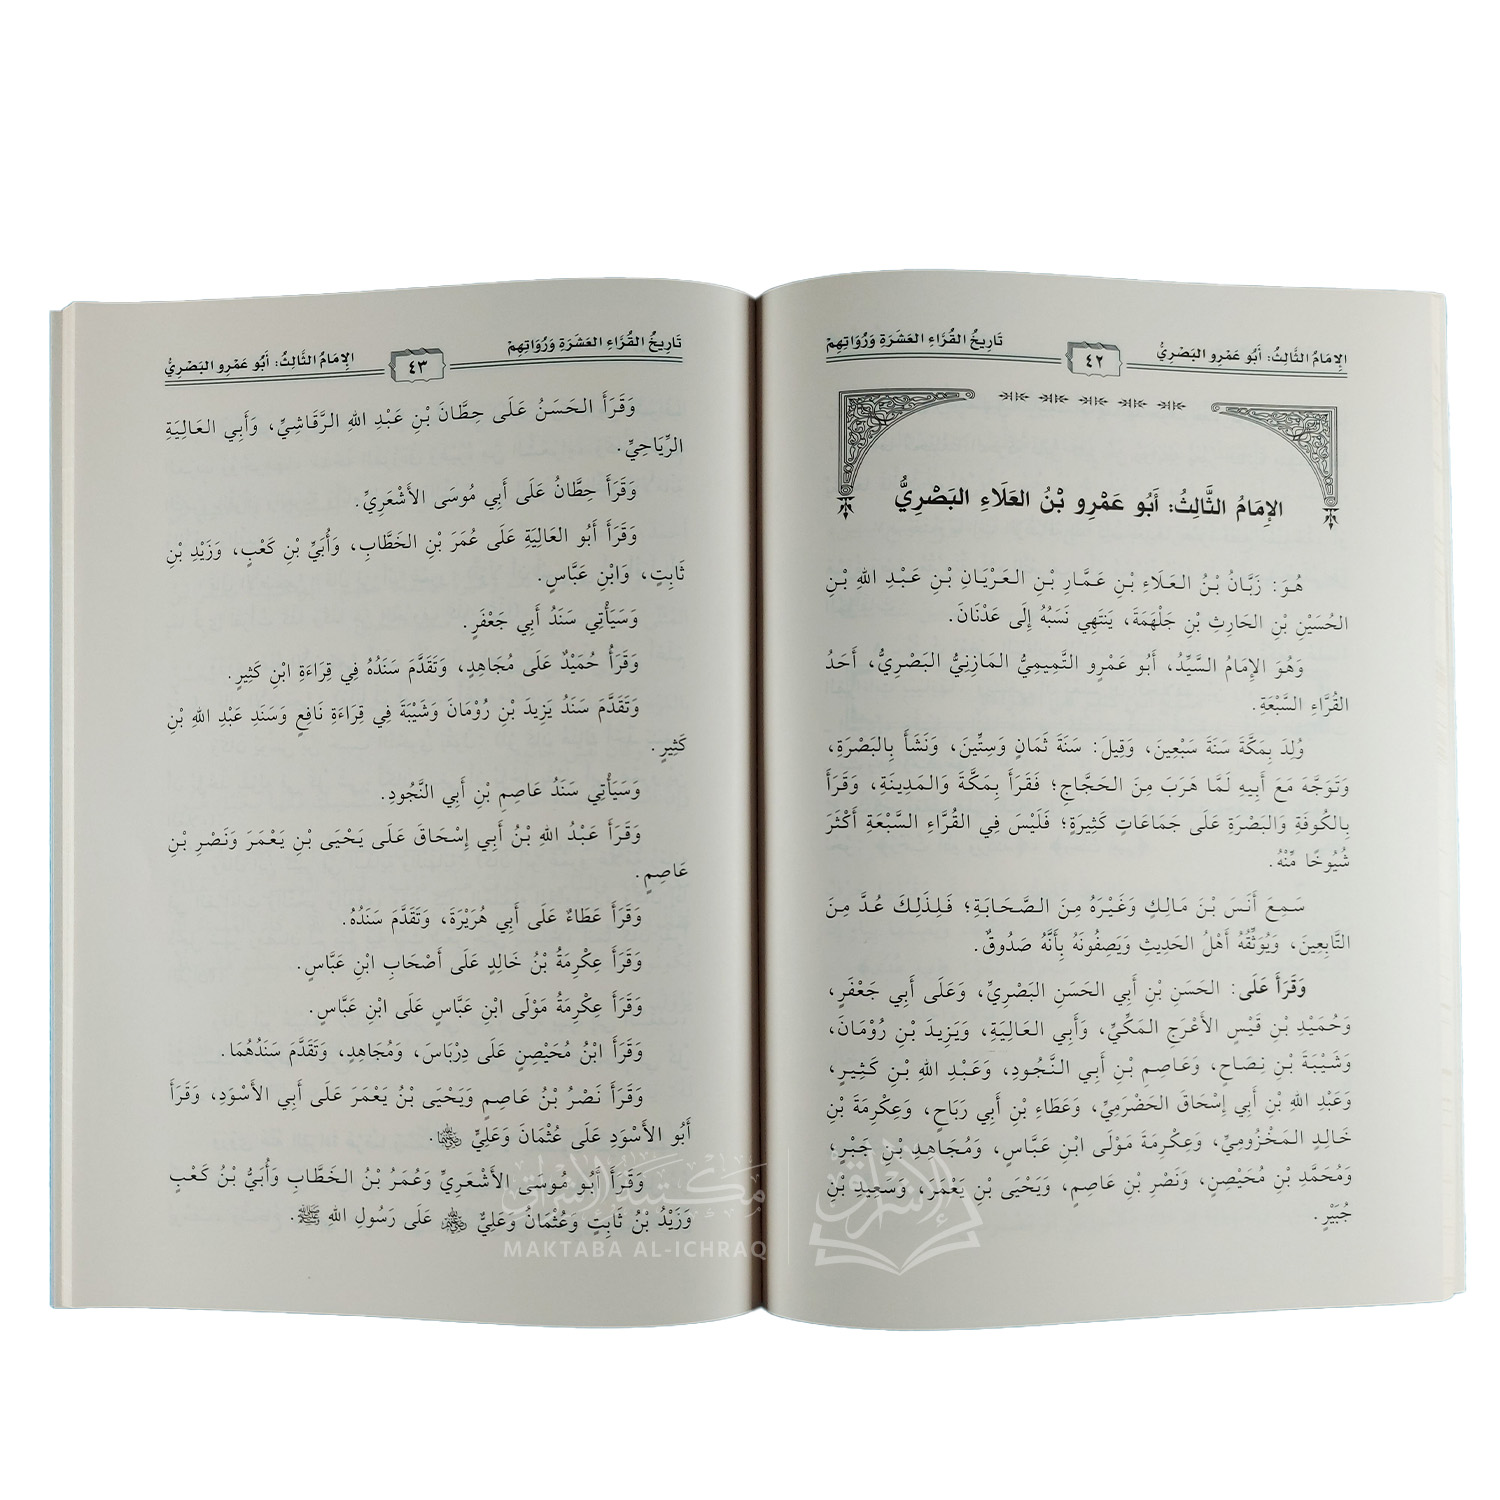 الإِمَامُ الثَّالِثُ: أَبُو عَمْرٍو البَصْرِيُّ
٤٢
تَارِيخُ القُرَّاءِ العَشَرَةِ وَرُوَاتِهِمْ
الإِمَامُ الثَّالِثُ: أَبُو عَمْرِو بْنُ العَلَاءِ البَصْرِيُّ
هُوَ: زَبَّانُ بْنُ العَلَاءِ بْنِ عَمَّارِ بْنِ العَرْيَانِ بْنِ عَبْدِ اللهِ بْنِ
الحُسَيْنِ بْنِ الحَارِثِ بْنِ جَلْهَمَةَ، يَنتَهِي نَسَبُهُ إِلَى عَدْنَانَ.
وَهُوَ الإِمَامُ السَّيِّدُ، أَبُو عَمْرٍو التَّمِيمِيُّ المَازِنِيُّ البَصْرِيُّ، أَحَدُ
القُرَّاءِ السَّبْعَةِ.
وُلِدَ بِمَكَّةَ سَنَةَ سَبْعِينَ، وَقِيلَ: سَنَةَ ثَمَانٍ وَسِتِّينَ، وَنَشَأَ بِالبَصْرَةِ،
وَتَوَجَّهَ مَعَ أَبِيهِ لَمَّا هَرَبَ مِنَ الحَجَّاجِ؛ فَقَرَأَ بِمَكَّةَ وَالمَدِينَةِ، وَقَرَأَ
بِالكُوفَةِ وَالبَصْرَةِ عَلَى جَمَاعَاتٍ كَثِيرَةٍ؛ فَلَيْسَ فِي القُرَّاءِ السَّبْعَةِ أَكْثَرَ
شُيُوخًا مِّنْهُ.
سَمِعَ أَنَسَ بْنَ مَالِكٍ وَغَيْرَهُ مِنَ الصَّحَابَةِ؛ فَلِذَلِكَ عُدَّ مِنَ
التَّابِعِينَ، وَيُوَثِّقُهُ أَهْلُ الحَدِيثِ وَيَصِفُونَهُ بِأَنَّهُ صَدُوقٌ.
وَقَرَأَ عَلَى: الحَسَنِ بْنِ أَبِي الحَسَنِ البَصْرِيِّ، وَعَلَى أَبِي جَعْفَرٍ،
وَحُمَيْدِ بْنِ قَيْسٍ الأَعْرَجِ المَكِّيِّ، وَأَبِي العَالِيَةِ، وَيَزِيدَ بْنِ رُومَانَ،
وَشَيْبَةَ بْنِ نِصَاحٍ، وَعَاصِمِ بْنِ أَبِي النَّجُودِ، وَعَبْدِ اللهِ بْنِ كَثِيرٍ،
وَعَبْدِ اللهِ بْنِ أَبِي إِسْحَاقَ الحَضْرَمِيِّ، وَعَطَاءِ بْنِ أَبِي رَبَاحٍ، وَعِكْرِمَةَ بْنِ
خَالِدٍ المَخْزُومِيِّ، وَعِكْرِمَةَ مَوْلَى ابْنِ عَبَّاسٍ، وَمُجَاهِدِ بْنِ جَبْرٍ،
وَمُحَمَّدِ بْنِ مُحَيْصِنٍ، وَنَصْرِ بْنِ عَاصِمٍ، وَيَحْيَى بْنِ يَعْمَرَ، وَسَعِيدِ بْنِ
جُبَيْرٍ.
تَارِيخُ القُرَّاءِ العَشَرَةِ وَرُوَاتِهِمْ
٤٣
الإِمَامُ الثَّالِثُ: أَبُو عَمْرٍو البَصْرِيُّ
وَقَرَأَ الحَسَنُ عَلَى حِطَّانَ بْنِ عَبْدِ اللهِ الرَّقَاشِيِّ، وَأَبِي العَالِيَةِ
الرِّيَاحِيِّ.
وَقَرَأَ حِطَّانُ عَلَى أَبِي مُوسَى الأَشْعَرِيِّ.
وَقَرَأَ أَبُو العَالِيَةِ عَلَى عُمَرَ بْنِ الخَطَّابِ، وَأُبَيِّ بْنِ كَعْبٍ، وَزَيْدِ بْنِ
ثَابِتٍ، وَابْنِ عَبَّاسٍ.
وَسَيَأْتِي سَنَدُ أَبِي جَعْفَرٍ.
وَقَرَأَ حُمَيْدٌ عَلَى مُجَاهِدٍ، وَتَقَدَّمَ سَنَدُهُ فِي قِرَاءَةِ ابْنِ كَثِيرٍ.
وَتَقَدَّمَ سَنَدُ يَزِيدَ بْنِ رُومَانَ وَشَيْبَةَ فِي قِرَاءَةِ نَافِعٍ وَسَنَدِ عَبْدِ اللهِ بْنِ
كَثِيرٍ.
وَسَيَأْتِي سَنَدُ عَاصِمِ بْنِ أَبِي النَّجُودِ.
وَقَرَأَ عَبْدُ اللهِ بْنُ أَبِي إِسْحَاقَ عَلَى يَحْيَى بْنِ يَعْمَرَ وَنَصْرِ بْنِ
عَاصِمٍ.
وَقَرَأَ عَطَاءٌ عَلَى أَبِي هُرَيْرَةَ، وَتَقَدَّمَ سَنَدُهُ.
وَقَرَأَ عِكْرِمَةُ بْنُ خَالِدٍ عَلَى أَصْحَابِ ابْنِ عَبَّاسٍ.
وَقَرَأَ عِكْرِمَةُ مَوْلَى ابْنِ عَبَّاسٍ عَلَى ابْنِ عَبَّاسٍ.
وَقَرَأَ ابْنُ مُحَيْصِنٍ عَلَى دِرْبَاسٍ، وَمُجَاهِدٍ، وَتَقَدَّمَ سَنَدُهُمَا.
وَقَرَأَ نَصْرُ بْنُ عَاصِمٍ وَيَحْيَى بْنُ يَعْمَرَ عَلَى أَبِي الأَسْوَدِ، وَقَرَأَ
أَبُو الأَسْوَدِ عَلَى عُثْمَانَ وَعَلِيٍّ.
وَقَرَأَ أَبُو مُوسَى الأَشْعَرِيُّ وَعُمَرُ بْنُ الخَطَّابِ وَأُبَيُّ بْنُ كَعْبٍ
وَزَيْدُ بْنُ ثَابِتٍ وَعُثْمَانُ وَعَلِيٌّ عَلَى رَسُولِ اللهِ ﷺ.
مكتبة الإشراق
MAKTABA AL-ICHRAQ
الإشراق